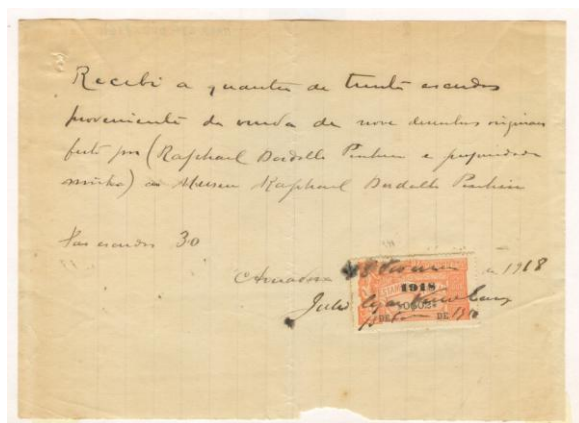 Recebi a quantia de trinta escudos
proveniente da venda de nove desenhos originaes
feitos por (Raphael Bordallo Pinheiro e propriedade
minha) ao Museu Raphael Bordallo Pinheiro
São escudos 30
Amadora 1918
1918
Julio Cesar
DE DE